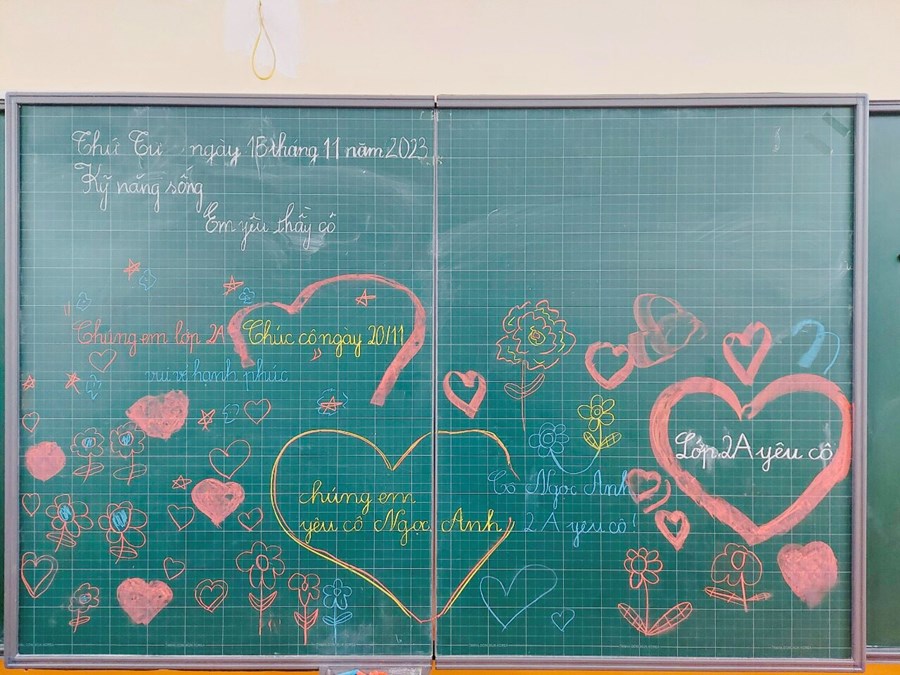 Thứ Tư ngày 15 tháng 11 năm 2023
Kỹ năng sống
Em yêu thầy cô
Chúng em lớp 2A Chúc cô ngày 20/11
vui vẻ hạnh phúc
chúng em
yêu cô Ngọc Anh
Cô Ngọc Anh
2A yêu cô!
Lớp 2A yêu cô